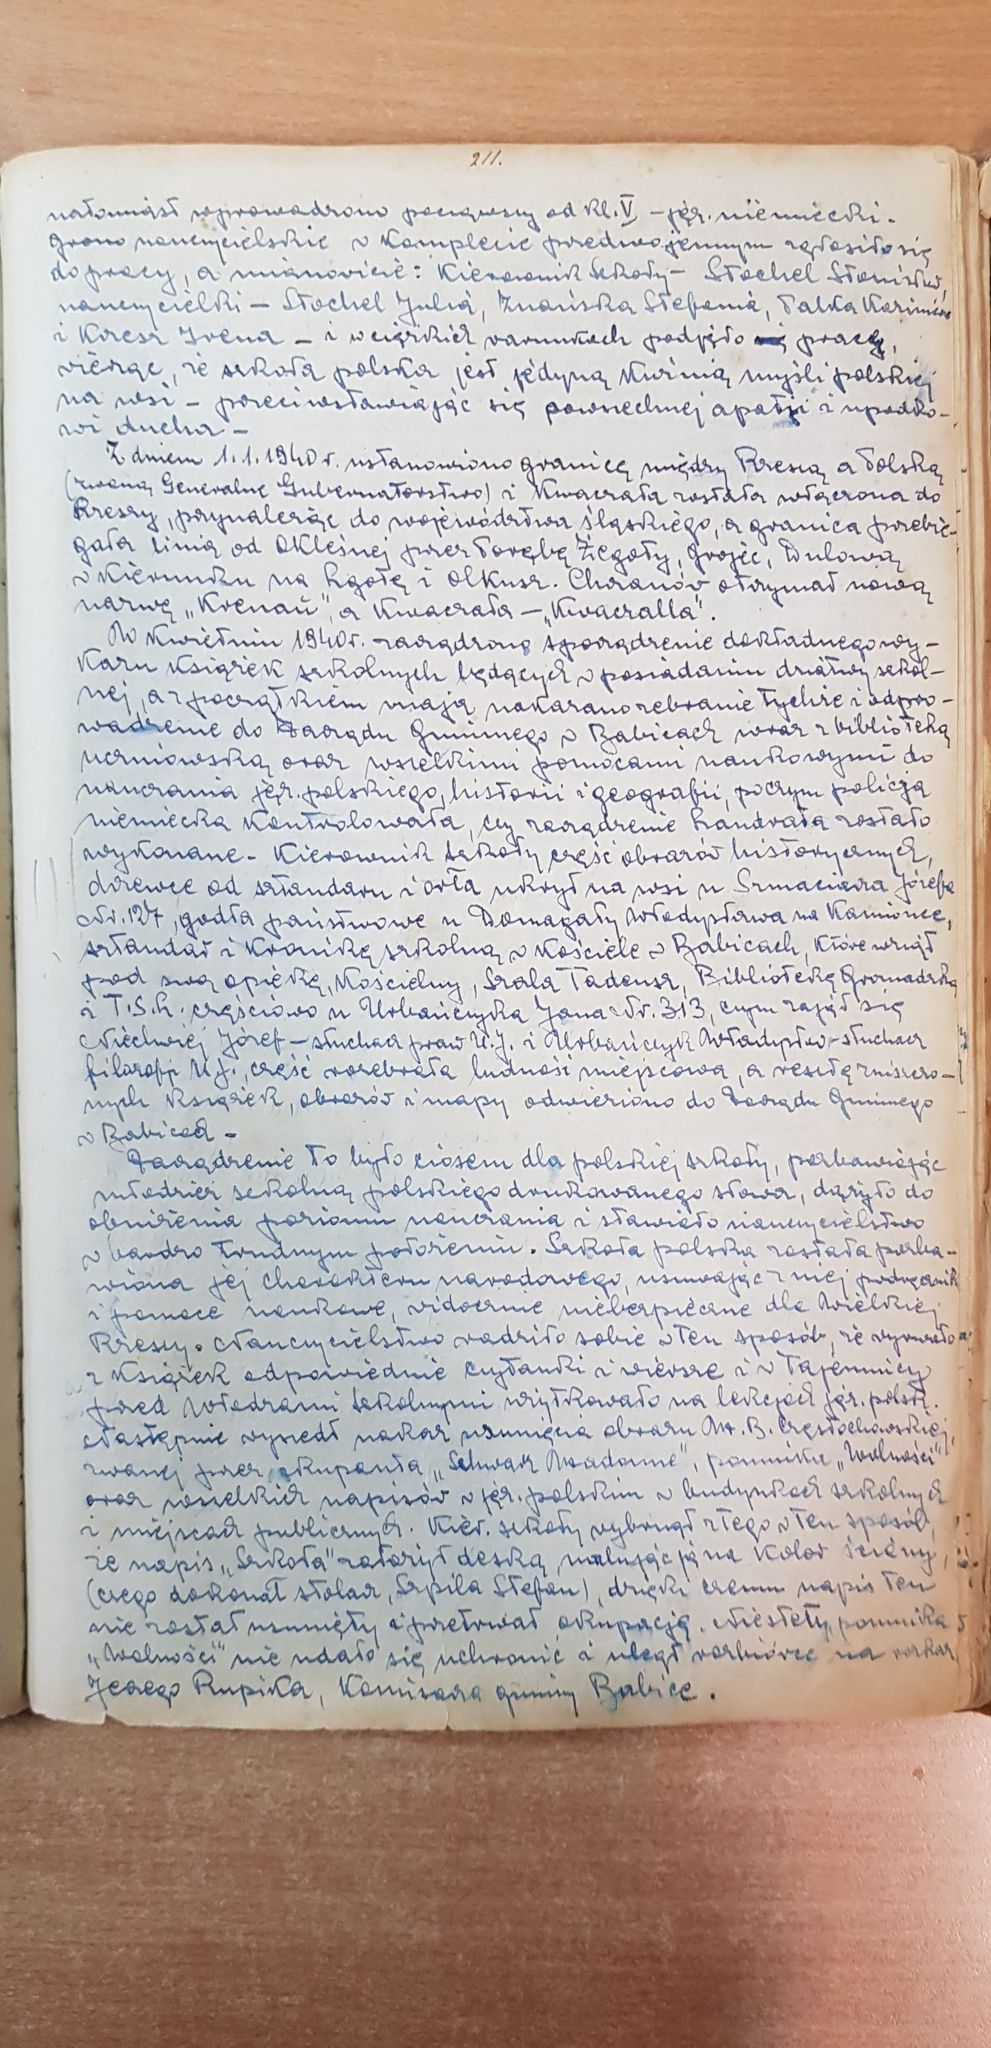 211.
natomiast wprowadzono począwszy od kl. V - jęz. niemiecki.
Grono nauczycielskie w komplecie przedwojennym zgłosiło się
do pracy, a mianowicie: Kierownik szkoły - Stochel Stanisław,
nauczycielki - Stochel Julia, Znańska Stefania, Palka Kazimiera
i Kresz Irena - i w ciężkich warunkach podjęło pracę,
wierząc, że szkoła polska jest jedyną kuźnią myśli polskiej
na wsi - przeciwstawiając się powszechnej apatji i upadko-
wi ducha -
Z dniem 1.1.1940 r. ustanowiono granicę między Rzeszą a Polską
(zwaną Generalne Gubernatorstwo) i Kwaczała została włączona do
Rzeszy, przynależąc do województwa śląskiego, a granica przebie-
gała linią od Okleśnej przez Porębę Żegoty, Grojec, Dulową
w kierunku na Lgotę i Olkusz. Chrzanów otrzymał nową
nazwę "Krenau", a Kwaczała - "Kwaczalla".
W kwietniu 1940 r. zarządzono sporządzenie dokładnego wy-
kazu książek szkolnych będących w posiadaniu dziatwy szkol-
nej, a z początkiem maja nakazano zebranie tychże i odpro-
wadzenie do Zarządu Gminnego w Babicach wraz z biblioteką
uczniowską oraz wszelkimi pomocami naukowymi do
nauczania jęz. polskiego, historii i geografii, poczym policja
niemiecka kontrolowała, czy zarządzenie Landrata zostało
wykonane - Kierownik szkoły część obrazów historycznych,
drzewce od sztandaru i orła ukrył na wsi u Szmaciarza Józefa
Nr. 127, godła państwowe u Domagały Władysława na Kamionce,
sztandar i Kronikę szkolną w Kościele w Babicach, które wziął
pod swą opiekę, Kościelny, Szala Tadeusz, Bibliotekę Gromadzką
i T.S.L. częściowo u Urbańczyka Jana Nr. 313, czym zajął się
Niechwiej Józef - słuchacz praw U.J. i Urbańczyk Władysław - słuchacz
filozofji U.J. część rozebrała ludność miejscowa, a resztę zniszczo-
nych książek, obrazów i mapy odwieziono do Zarządu Gminnego
w Babicach -
Zarządzenie to było ciosem dla polskiej szkoły, pozbawiając
młodzież szkolną polskiego drukowanego słowa, dążyło do
obniżenia poziomu nauczania i stawiało nauczycielstwo
w bardzo trudnym położeniu. Szkoła polska została pozba-
wiona jej charakteru narodowego, usuwając z niej podręczniki
i pomoce naukowe, widocznie niebezpieczne dla Wielkiej
Rzeszy. Nauczycielstwo radziło sobie w ten sposób, że wyrwało
z książek odpowiednie czytanki i wiersze i w tajemnicy
przed władzami szkolnymi użytkowało na lekcjach jęz. polsk.
Następnie wyszedł nakaz usunięcia obrazu M. B. Częstochowskiej,
zwanej przez okupanta "Schwarz Madonne", pomnika "Wolności"
oraz wszelkich napisów w jęz. polskim w budynkach szkolnych
i miejscach publicznych. Kier. szkoły wybrnął z tego w ten sposób,
że napis "Szkoła" założył deską, malując ją na kolor ściany,
(czego dokonał stolarz, Szpila Stefan), dzięki czemu napis ten
nie został usunięty i przetrwał okupację. Niestety, pomnika
"Wolności" nie udało się uchronić i uległ rozbiórce na rozkaz
Jerzego Rupika, Komisarza gminy Babice.